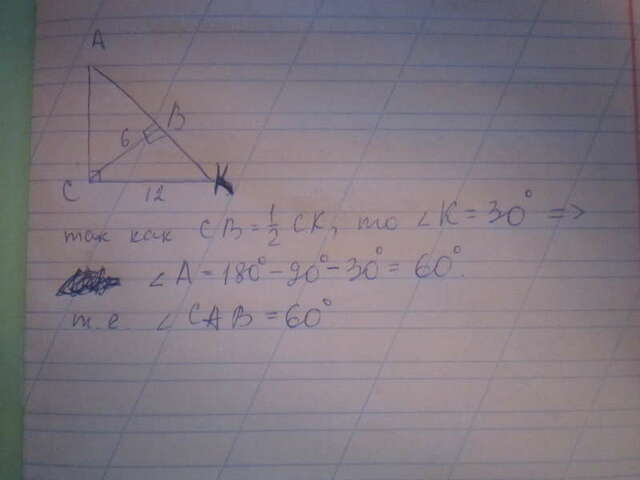 A
B
6
C
K
12
так как CB = 1/2 CK, то ∠K = 30° =>
∠A = 180° - 90° - 30° = 60°.
т.е ∠CAB = 60°